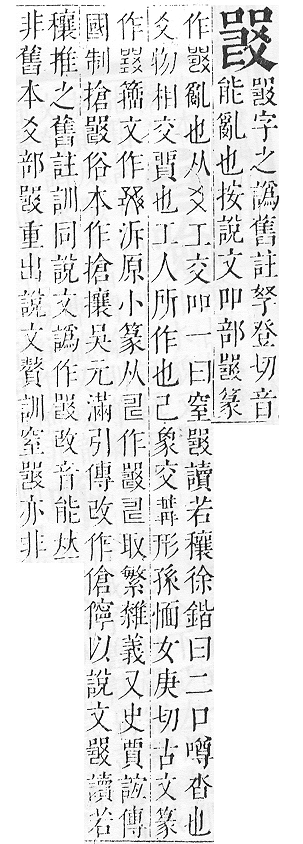 𤕦字之譌舊註孥登切音
能亂也按說文吅部𤕦篆
作𤕦亂也从爻工交吅一曰窒𤕦讀若穰徐鍇曰二口噂沓也
爻物相交質也工人所作也己象交冓形孫愐女庚切古文篆
作籀文作泝原小篆从作取繁雜義又史賈誼傳
國制搶𤕦俗本作搶攘吳元滿引傳改作傖儜以說文𤕦讀若
穰推之舊註訓同說文譌作改音能𠀤
非舊本爻部𤕦重出說文贅訓窒𤕦亦非